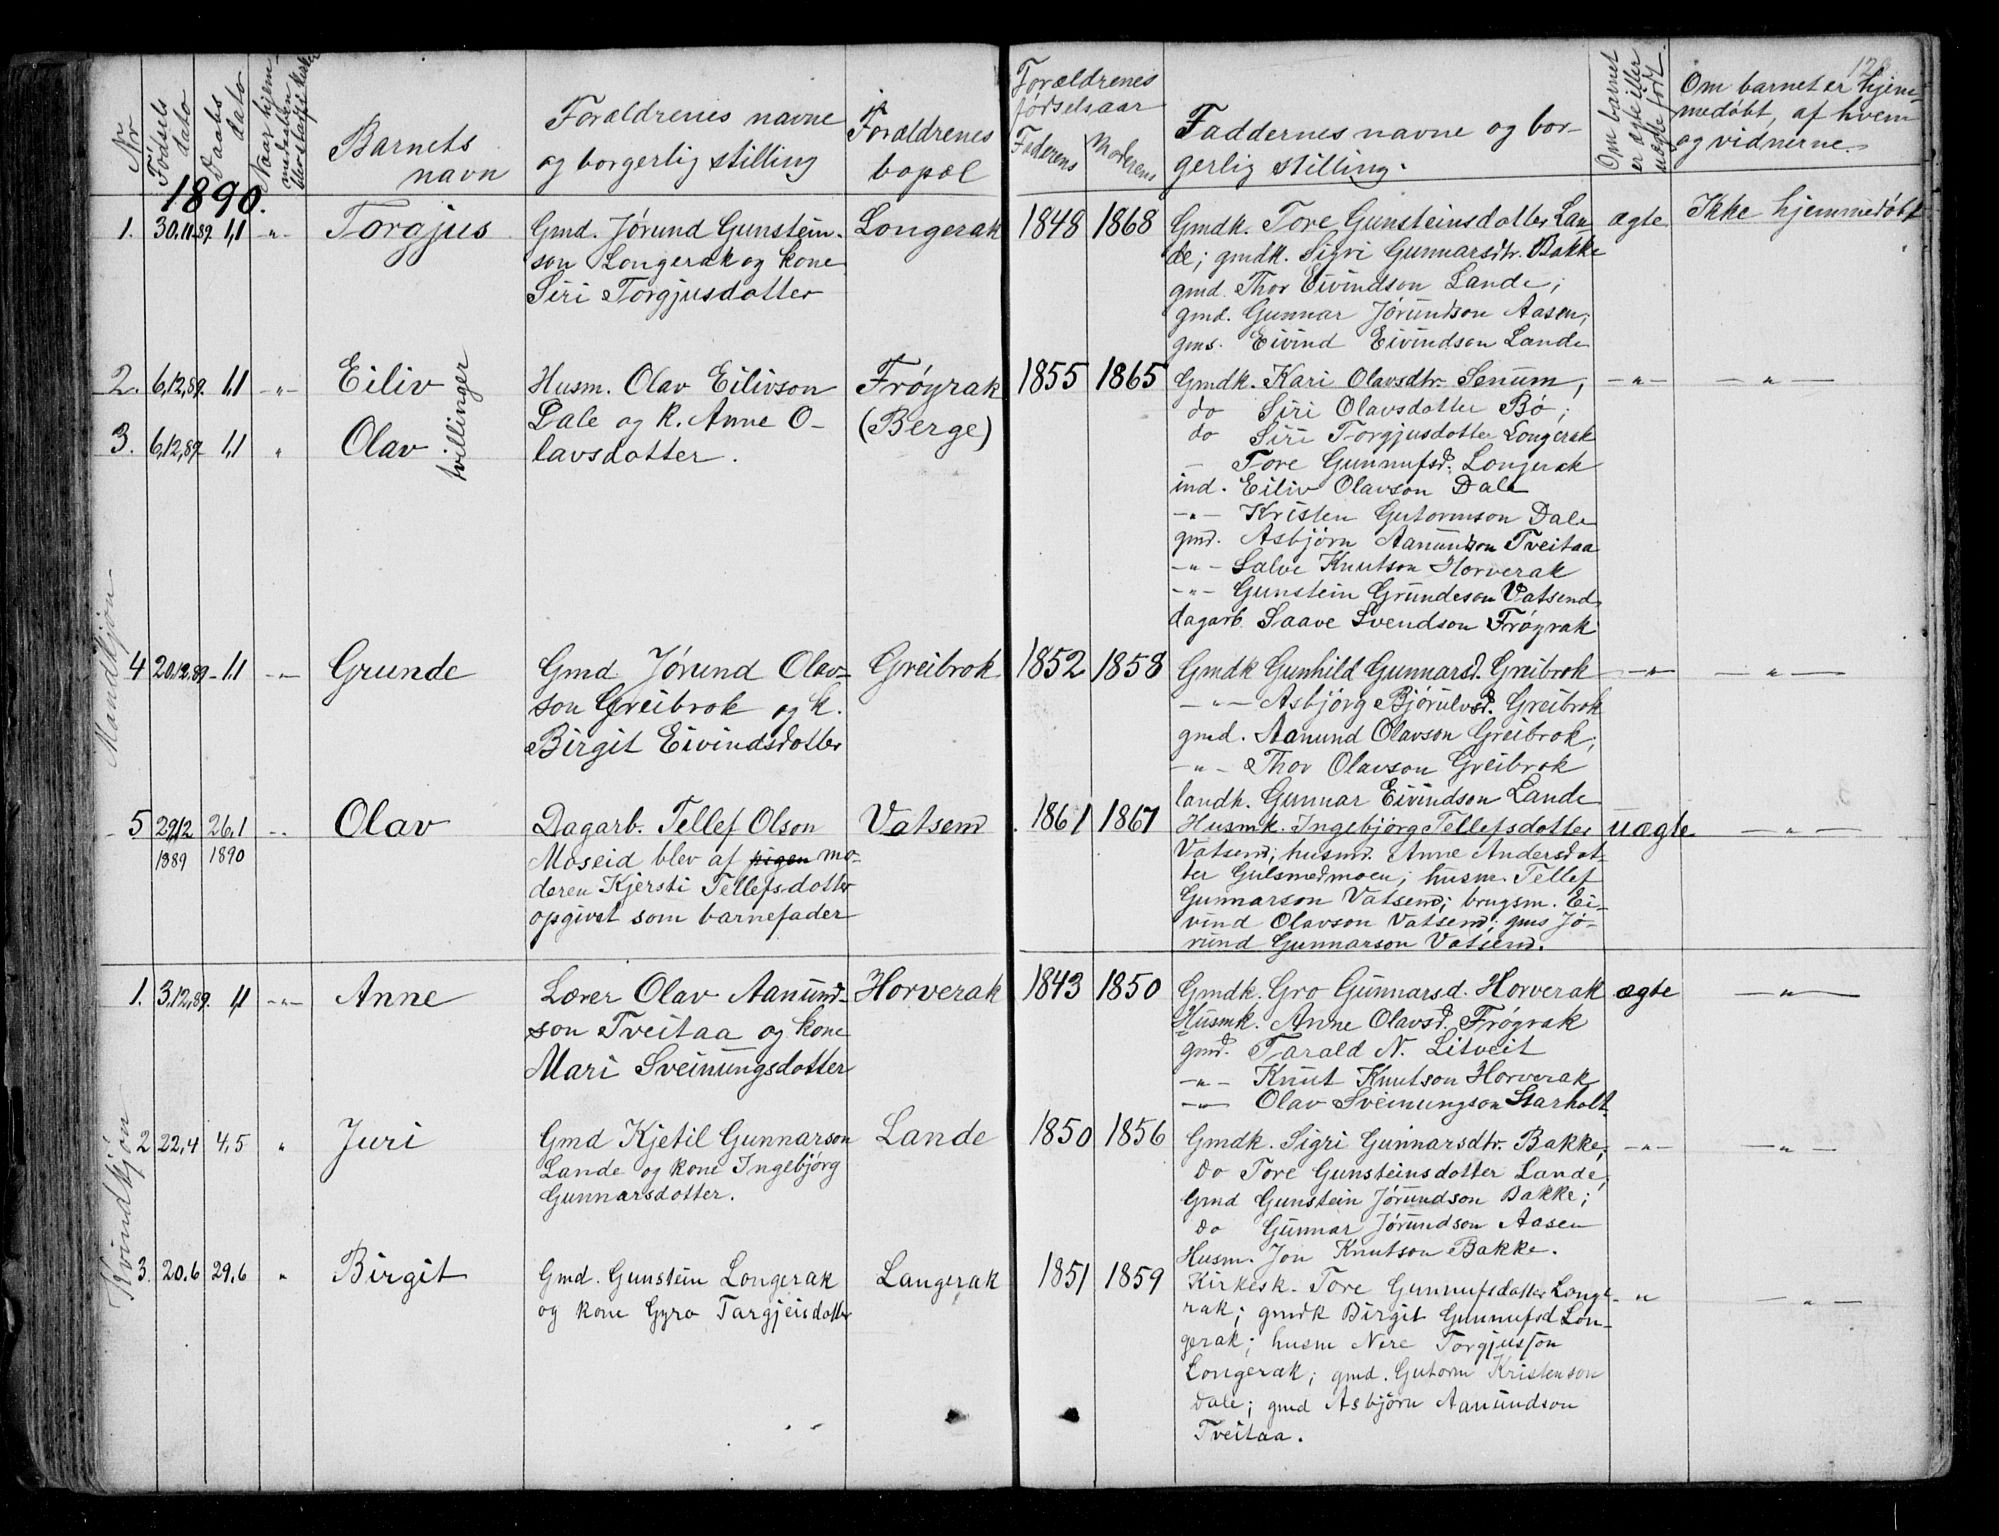 128
Nr
Fødsels dato
Daabs dato
Naar hjemmedaaben
Barnets navn
Forældrenes navne
og borgerlig stilling
Forældrenes
bopæl
Forældrenes
fødselsaar
Faderens
Moderens
Faddernes navne og bor-
gerlig stilling.
Om barnet
er ægte eller
uægte født.
Om barnet er hjem-
medøbt, af hvem
og vidnerne.
1890.
Mandkjøn
1. 30.11.89. 1,1 -"- Torgjus
Gmd. Jørund Gunstein-
son Longerak og kone
Siri Torgjusdotter
Longerak
1848 1868
Gmdk. Tore Gunsteinsdotter Lan
de; gmdk. Sigri Gunnarsdtr. Bakke
gmd. Thor Eivindson Lande;
gmd. Gunnar Jørundson Aasen;
gms. Eivind Eivindson Lande
ægte
Ikke hjemmedøbt
2. 6,12,89. 1,1 -"- Eiliv
3. 6,12,89 1,1 " Olav
tvillinger
Husm. Olav Eilivson
Dale og k. Anne O-
lavsdotter.
Frøyrak
(Berge)
1855 1865
Gmdk. Kari Olavsdtr. Senum,
do Siri Olavsdotter Bø;
do Siri Torgjusdotter Longerak
— Tore Gunnufsd. Longerak
ind. Eiliv Olavson Dale
-"- Kristen Gutormson Dale
gmd. Asbjørn Aanundson Tveitaa
-"- Salve Knutson Horverak
-"- Gunstein Grundeson Vatsend
dagarb. Saave Svendson Frøyrak
-"- -"-
4 20,12,89- 1.1 -"- Grunde
Gmd Jørund Olav-
son Greibrok og k.
Birgit Eivindsdotter
Greibrok
1852 1858
Gmdk Gunhild Gunnarsd. Greibrok
-"- Asbjörg Bjørulvsd. Greibrok
gmd. Aanund Olavson Greibrok;
-"- Thor Olavson Greibrok
landh. Gunnar Eivindson Lande
-"- -"-
5 29,12 1889 26,1 1890 -"- Olav
Dagarb. Tellef Olson
Moseid blev af pigen mo-
deren Kjersti Tellefsdotter
opgivet som barnefader
Vatsend
1861 1867
Husmk. Ingebjørg Tellefsdotter
Vatsend; husmd. Anne Andersdot-
ter Gulsmedmoen; husm. Tellef
Gunnarson Vatsend; brugsm. Ei-
vind Olavson Vatsend; gms Jø-
rund Gunnarson Vatsend.
uægte -"-
Kvindkjøn
1. 3,12,89. 1,1 -"- Anne
Lærer Olav Aanund-
son Tveitaa og kone
Mari Sveinungsdotter
Horverak
1843 1850
Gmdk. Gro Gunnarsd. Horverak
Husmk. Anne Olavsd. Frøyrak
gmd. Tarald N. Litveit
-"- Knut Knutson Horverak
-"- Olav Sveinungson Starholt
ægte -"-
2 22,4 4,5 " Juri
Gmd Kjetil Gunnarson
Lande og kone Ingebjörg
Gunnarsdotter.
Lande
1850 1856
Gmdk. Sigri Gunnarsdtr. Bakke;
do Tore Gunsteinsdotter Lande;
Gmd Gunstein Jørundson Bakke;
do Gunnar Jørundson Aasen
Husm. Jon Knutson Bakke.
-"- -"-
3. 20.6 29.6 " Birgit
Gmd. Gunstein Longerak
og kone Gyro Targjeisdotter
Langerak
1851 1859
Kirkesk. Tore Gunnufsdotter Longe-
rak; gmdk Birgit Gunnufsd Lon-
gerak; husm Nere Torgjusson
Longerak; gmd. Gutorm Kristenson
Dale; gmd Asbjørn Aanundson
Tveitaa.
" -"-